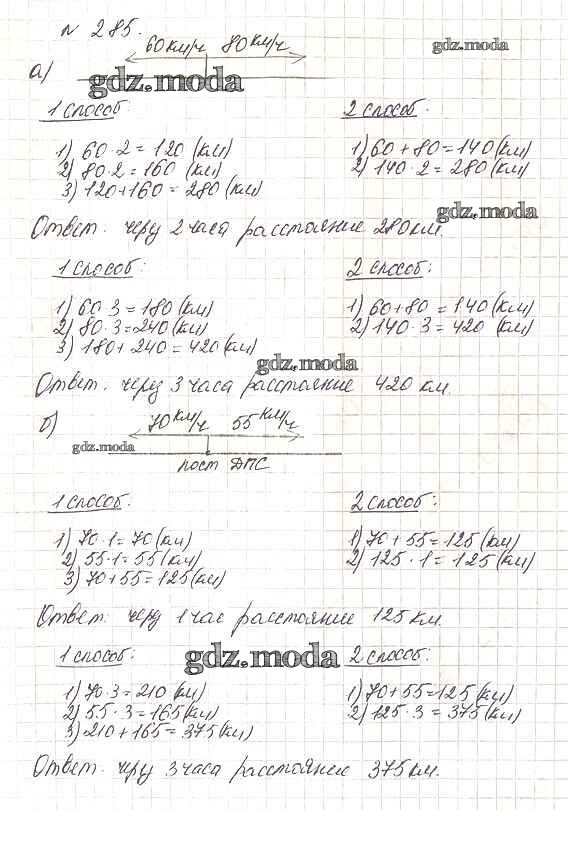 № 285.
60 км/ч 80 км/ч
gdz.moda
а) gdz.moda
1 способ: 2 способ.
1) 60 · 2 = 120 (км) 1) 60 + 80 = 140 (км)
2) 80 · 2 = 160 (км) 2) 140 · 2 = 280 (км)
3) 120 + 160 = 280 (км)
gdz.moda
Ответ. через 2 часа расстояние 280 км.
1 способ: 2 способ:
1) 60 · 3 = 180 (км) 1) 60 + 80 = 140 (км)
2) 80 · 3 = 240 (км) 2) 140 · 3 = 420 (км)
3) 180 + 240 = 420 (км)
gdz.moda
Ответ. через 3 часа расстояние 420 км.
б) 70 км/ч 55 км/ч
gdz.moda
пост ДПС
1 способ. 2 способ:
1) 70 · 1 = 70 (км) 1) 70 + 55 = 125 (км)
2) 55 · 1 = 55 (км) 2) 125 · 1 = 125 (км)
3) 70 + 55 = 125 (км)
Ответ: через 1 час расстояние 125 км.
1 способ: gdz.moda 2 способ:
1) 70 · 3 = 210 (км) 1) 70 + 55 = 125 (км)
2) 55 · 3 = 165 (км) 2) 125 · 3 = 375 (км)
3) 210 + 165 = 375 (км)
Ответ. через 3 часа расстояние 375 км.